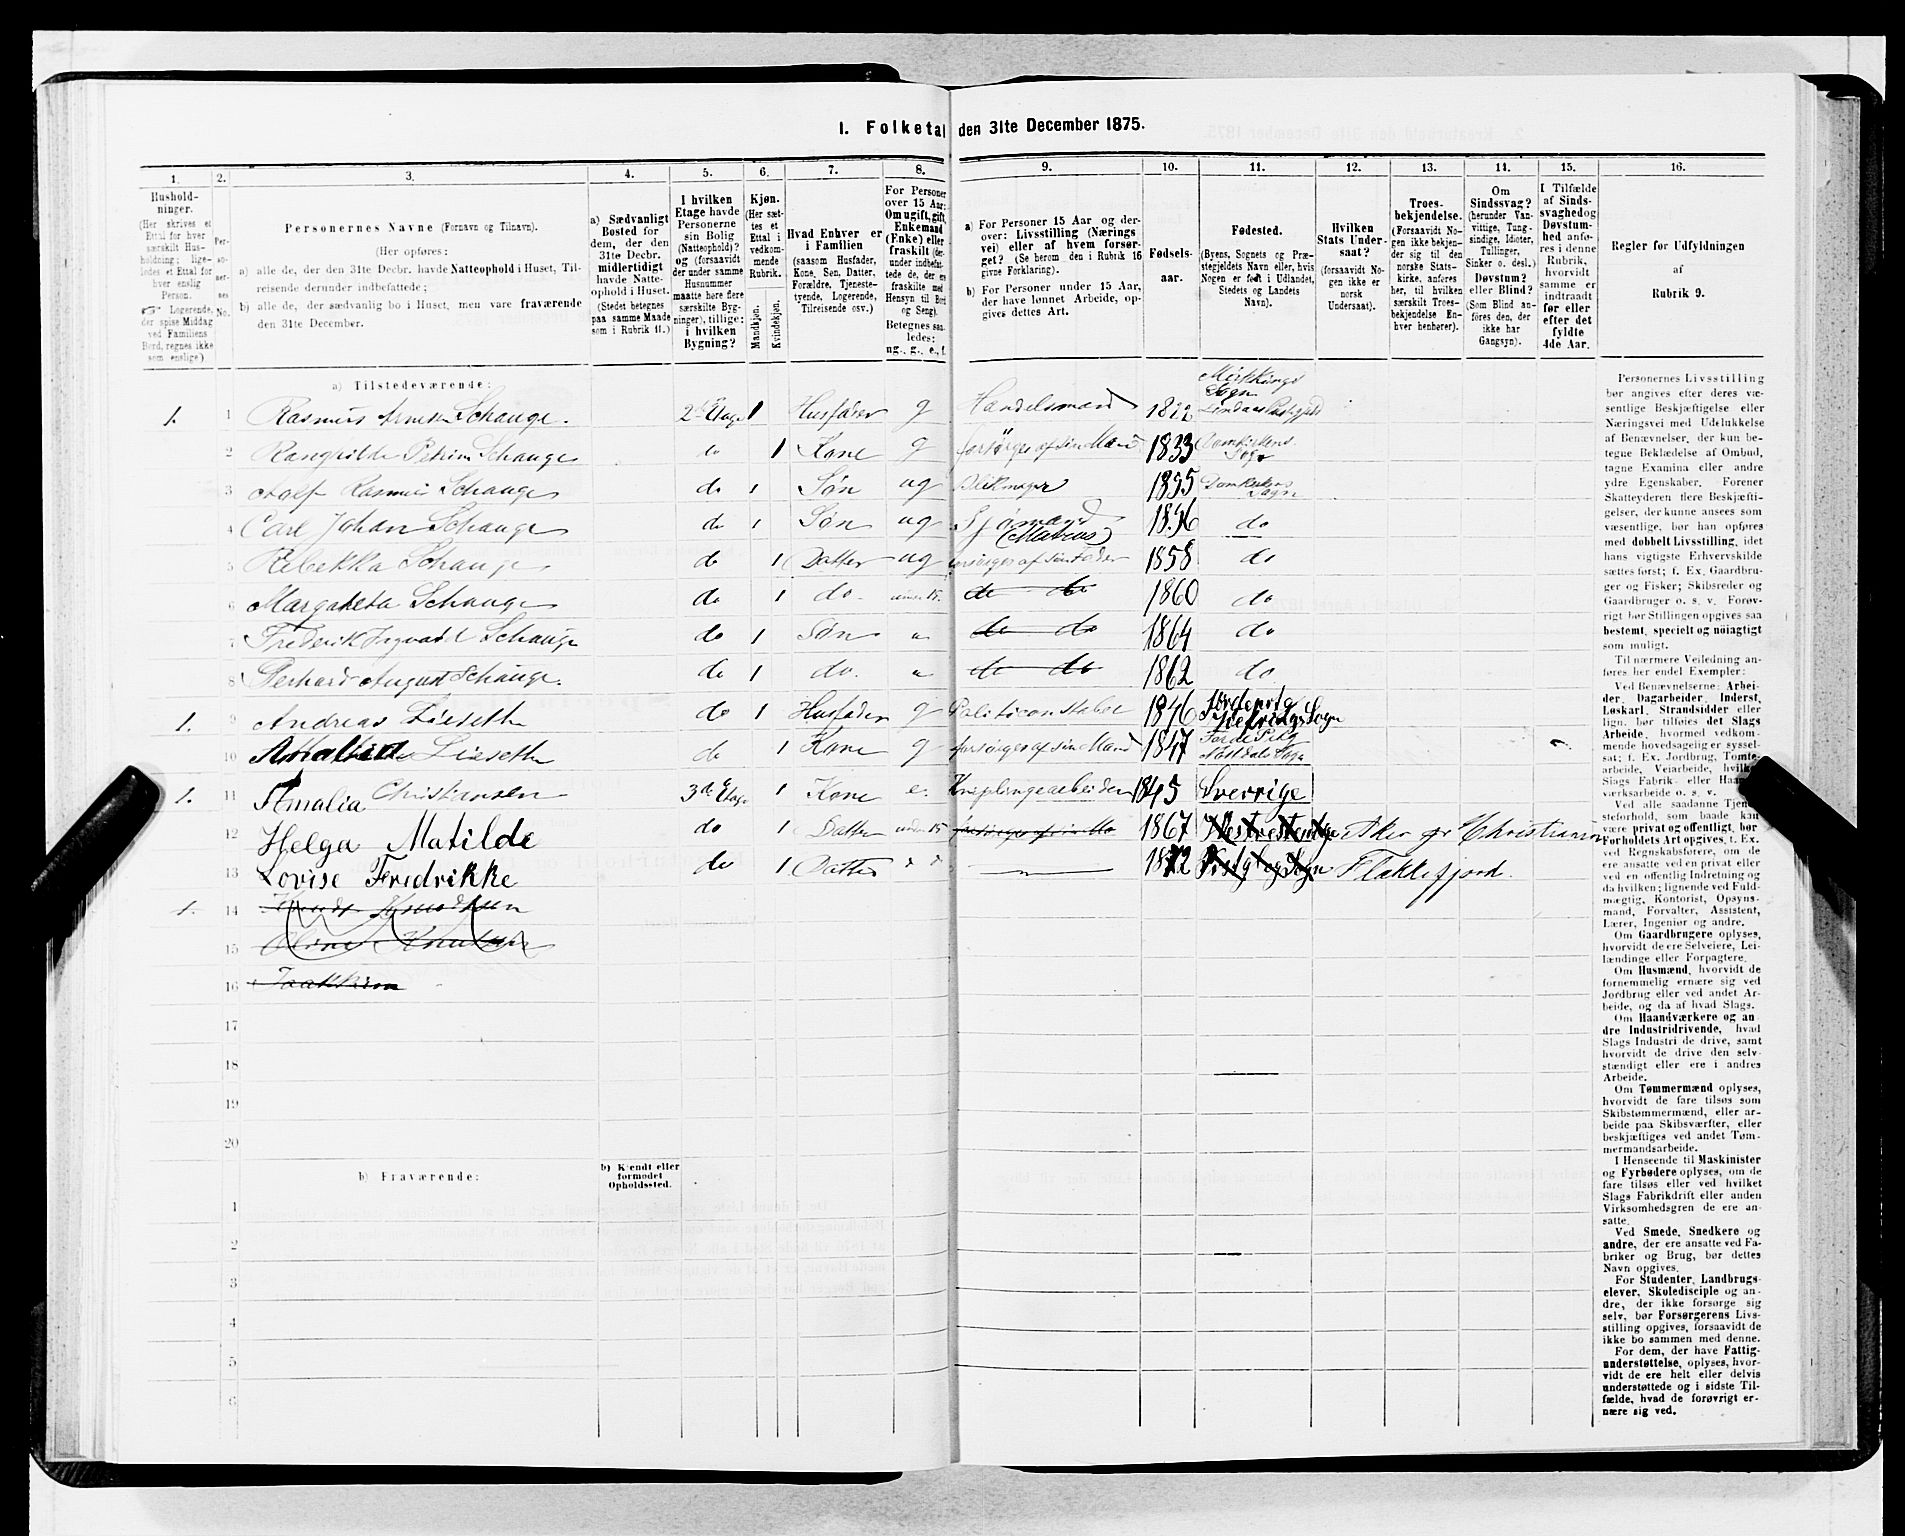 1. Folketal den 31te December 1875.
1.
Hushold-
ninger.
(Her skrives et
Ettal for hver
særskilt Hus-
holdning; lige-
ledes et Ettal for
hver enslig
Person.
☞ Logerende,
der spise Middag
ved Familiens
Bord, regnes ikke
som enslige.)
2.
Per-
soner-
nes
No.
3.
Personernes Navne (Fornavn og Tilnavn).
(Her opføres:
a) alle de, der den 31te Decbr. havde Natteophold i Huset, Til-
reisende derunder indbefattede;
b) alle de, der sædvanlig bo i Huset, men vare fraværende
den 31te December.
4.
a) Sædvanligt
Bosted for
dem, der den
31te Decbr.
midlertidigt
havde Natte-
ophold i Huset.
(Stedet betegnes
paa samme Maade
som i Rubrik 11.)
5.
I hvilken
Etage havde
Personerne
sin Bolig
(Natteophold)?
og (forsaavidt
der under samme
Husnummer
maatte høre flere
særskilte Byg-
ninger), tillige:
i hvilken
Bygning?
6.
Kjøn.
(Her sæt-
tes et
Ettal i
vedkom-
mende
Rubrik.
Mandkjøn.
Kvindekjøn.
7.
Hvad Enhver er
i Familien
(saasom Husfader,
Kone, Søn, Datter,
Forældre, Tjeneste-
tyende, Logerende,
Tilreisende osv.)
8.
For Personer
over 15 Aar:
Om ugift, gift,
Enkemand
(Enke) eller
fraskilt (der-
under indbefat-
tede de, der er
fraskilte med
Hensyn til Bord
og Seng).
Betegnes saa-
ledes:
ug., g., e., f.
9.
a) For Personer 15 Aar og der-
over: Livsstilling (Nærings-
vei) eller af hvem forsør-
get? (Se herom den i Rubrik 16
givne Forklaring).
b) For Personer under 15 Aar,
der have lønnet Arbeide, op-
gives dettes Art.
10.
Fødsels-
aar.
11.
Fødested.
(Byens, Sognets og Præ-
stegjeldets Navn eller, hvis
Nogen er født i Udlandet,
Stedets og Landets
Navn).
12.
Hvilken
Stats Under-
saat?
(forsaavidt No-
gen ikke er
norsk
Undersaat).
13.
Troes-
bekjendelse.
(Forsaavidt No-
gen ikke bekjen-
der sig til den
norske Stats-
kirke, anføres
her, til hvilken
særskilt Troes-
bekjendelse En-
hver henhører).
14.
Om
Sindssvag?
(herunder Van-
vittige, Tung-
sindige, Idioter,
Tullinger,
Sinker o. desl.)
Døvstum?
eller Blind?
(Som Blind an-
føres den, der
ikke har
Gangsyn).
15.
I Tilfælde
af Sinds-
svaghed og
Døvstum-
hed anfø-
res i denne
Rubrik,
hvorvidt
samme er
indtraadt
før eller
efter det
fyldte
4de Aar.
16.
Regler for Udfyldningen
af
Rubrik 9.
a) Tilstedeværende:
1. 1 Rasmus Schange. 2den Etage 1 Husfader g Handelsmand 1822 Sogn
2 Schange do 1 Kone g forsørges af sin Mand 1833 Domkirkens Sogn
3 Rasmus Schange do 1 Søn ug 1855 Domkirkens Sogn
4 Carl Johan Schange do 1 Søn ug Sjømand (Matros) 1856 do
5 Rebekka Schange do 1 Datter ug forsørges af sin Fader 1858 do
6 Margareta Schange do 1 do. under 15. do do 1860 do
7 Frederik Ingvald Schange do 1 Søn " do do 1864 do
8 Gerhard August Schange. do 1 do. " do do 1862 do
1. 9 Andreas do 1 Husfader g Politiconstabel 1846 Sogn
10 do 1 Kone g forsørges af sin Mand 1847 Førde
1. 11 Amalia Christiansen 3de Etage 1 Kone e. 1845 Sverrige
12 Helga Matilde do 1 Datter under 15 1867 Aker pr Christiania
13 Lovise Fredrikke do 1 Datter " " 1872 Flakkefjord.
1. 14
15 Knutsen
16
17
18
19
20
b) Fraværende:
b) Kjendt eller
formodet
Opholdssted.
1
2
3
4
5
6
Personernes Livsstilling
bør angives efter deres væ-
sentlige Beskjæftigelse eller
Næringsvei med Udelukkelse
af Benævnelser, der kun be-
tegne Beklædelse af Ombud,
tagne Examina eller andre
ydre Egenskaber. Forener
Skatteyderen flere Beskjæfti-
gelser, der kunne ansees som
væsentlige, bør han opføres
med dobbelt Livsstilling, idet
hans vigtigste Erhvervskilde
sættes først; f. Ex. Gaardbru-
ger og Fisker; Skibsreder og
Gaardbruger o. s. v. Forøv-
rigt bør Stillingen opgives saa
bestemt, specielt og nøiagtigt
som muligt.
Til nærmere Veiledning an-
føres her endel Exempler:
Ved Benævnelserne: Arbei-
der, Dagarbeider, Inderst,
Løskarl, Strandsidder eller
lign. bør tilføies det Slags
Arbeide, hvormed vedkom-
mende hovedsagelig er syssel-
sat; f. Ex. Jordbrug, Tomte-
arbeide, Veiarbeide, hvilket
Slags Fabrik- eller Haand-
værksarbeide o. s. v.
Ved alle saadanne Tjene-
steforhold, som baade kan
være privat og offentligt, bør
Forholdets Art opgives, t. Ex.
ved Regnskabsførere, om de
ere ansatte ved en privat eller
ved en offentlig Indretning og
da hvilken; lignende ved Fuld-
mægtig, Kontorist, Opsyns-
mand, Forvalter, Assistent,
Lærer, Ingeniør og andre.
Om Gaardbrugere oplyses,
hvorvidt de ere Selveiere, Lei-
lændinge eller Forpagtere.
Om Husmænd, hvorvidt de
fornemmelig ernære sig ved
Jordbrug eller ved andet Ar-
beide, og da af hvad Slags.
Om Haandværkere og an-
dre Industridrivende, hvad
Slags Industri de drive, samt
hvorvidt de drive den selv-
stændigt eller ere i andres
Arbeide.
Om Tømmermænd oplyses,
hvorvidt de fare tilsøs som
Skibstømmermænd, eller ar-
beide paa Skibsværfter, eller
beskjæftiges ved andet Tøm-
mermandsarbeide.
I Henseende til Maskinister
og Fyrbødere oplyses, om de
fare tilsøs eller ved hvilket
Slags Fabrikdrift eller anden
Virksomhedsgren de ere an-
satte.
Ved Smede, Snedkere og
andre, der ere ansatte ved Fa-
briker og Brug, bør dettes
Navn opgives.
For Studenter, Landbrugs-
elever, Skoledisciple og an-
dre, der ikke forsørge sig
selv, bør Forsørgerens Livs-
stilling opgives, forsaavidt de
ikke bo sammen med denne.
For dem, der have Fattig-
understøttelse, oplyses, hvor-
vidt de ere helt eller delvis
understøttede og i sidste Til-
fælde, hvad de forøvrigt er-
nære sig ved.